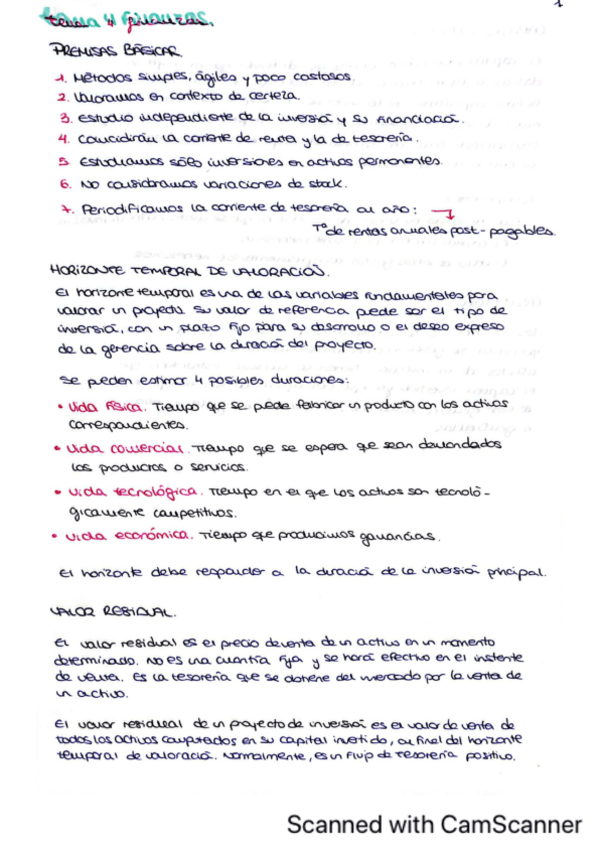 1
tema 4 finanzas.
PREMISAS BÁSICAS.
1. Métodos simples, ágiles y poco costosos.
2. Valoramos en contexto de certeza.
3. Estudio independiente de la inversión y su financiación.
4. Coincidirán la corriente de renta y la de tesorería.
5. Estudiamos sólo inversiones en activos permanentes.
6. No consideramos variaciones de stock.
7. Periodificamos la corriente de tesorería al año:
Tº de rentas anuales post-pagables.
HORIZONTE TEMPORAL DE VALORACIÓN.
El horizonte temporal es una de las variables fundamentales para
valorar un proyecto. Su valor de referencia puede ser el tipo de
inversión, con un plazo fijo para su desarrollo o el deseo expreso
de la gerencia sobre la duración del proyecto.
Se pueden estimar 4 posibles duraciones:
• Vida física. Tiempo que se puede fabricar un producto con los activos
correspondientes.
• Vida comercial. Tiempo que se espera que sean demandados
los productos o servicios.
• Vida tecnológica. Tiempo en el que los activos son tecnoló-
gicamente competitivos.
• Vida económica. Tiempo que producimos ganancias.
El horizonte debe responder a la duración de la inversión principal.
VALOR RESIDUAL.
El valor residual es el precio de venta de un activo en un momento
determinado. No es una cuantía fija y se hará efectivo en el instante
de venta. Es la tesorería que se obtiene del mercado por la venta de
un activo.
El valor residual de un proyecto de inversión es el valor de venta de
todos los activos computados en su capital invertido, al final del horizonte
temporal de valoración. Normalmente, es un flujo de tesorería positivo.
Scanned with CamScanner